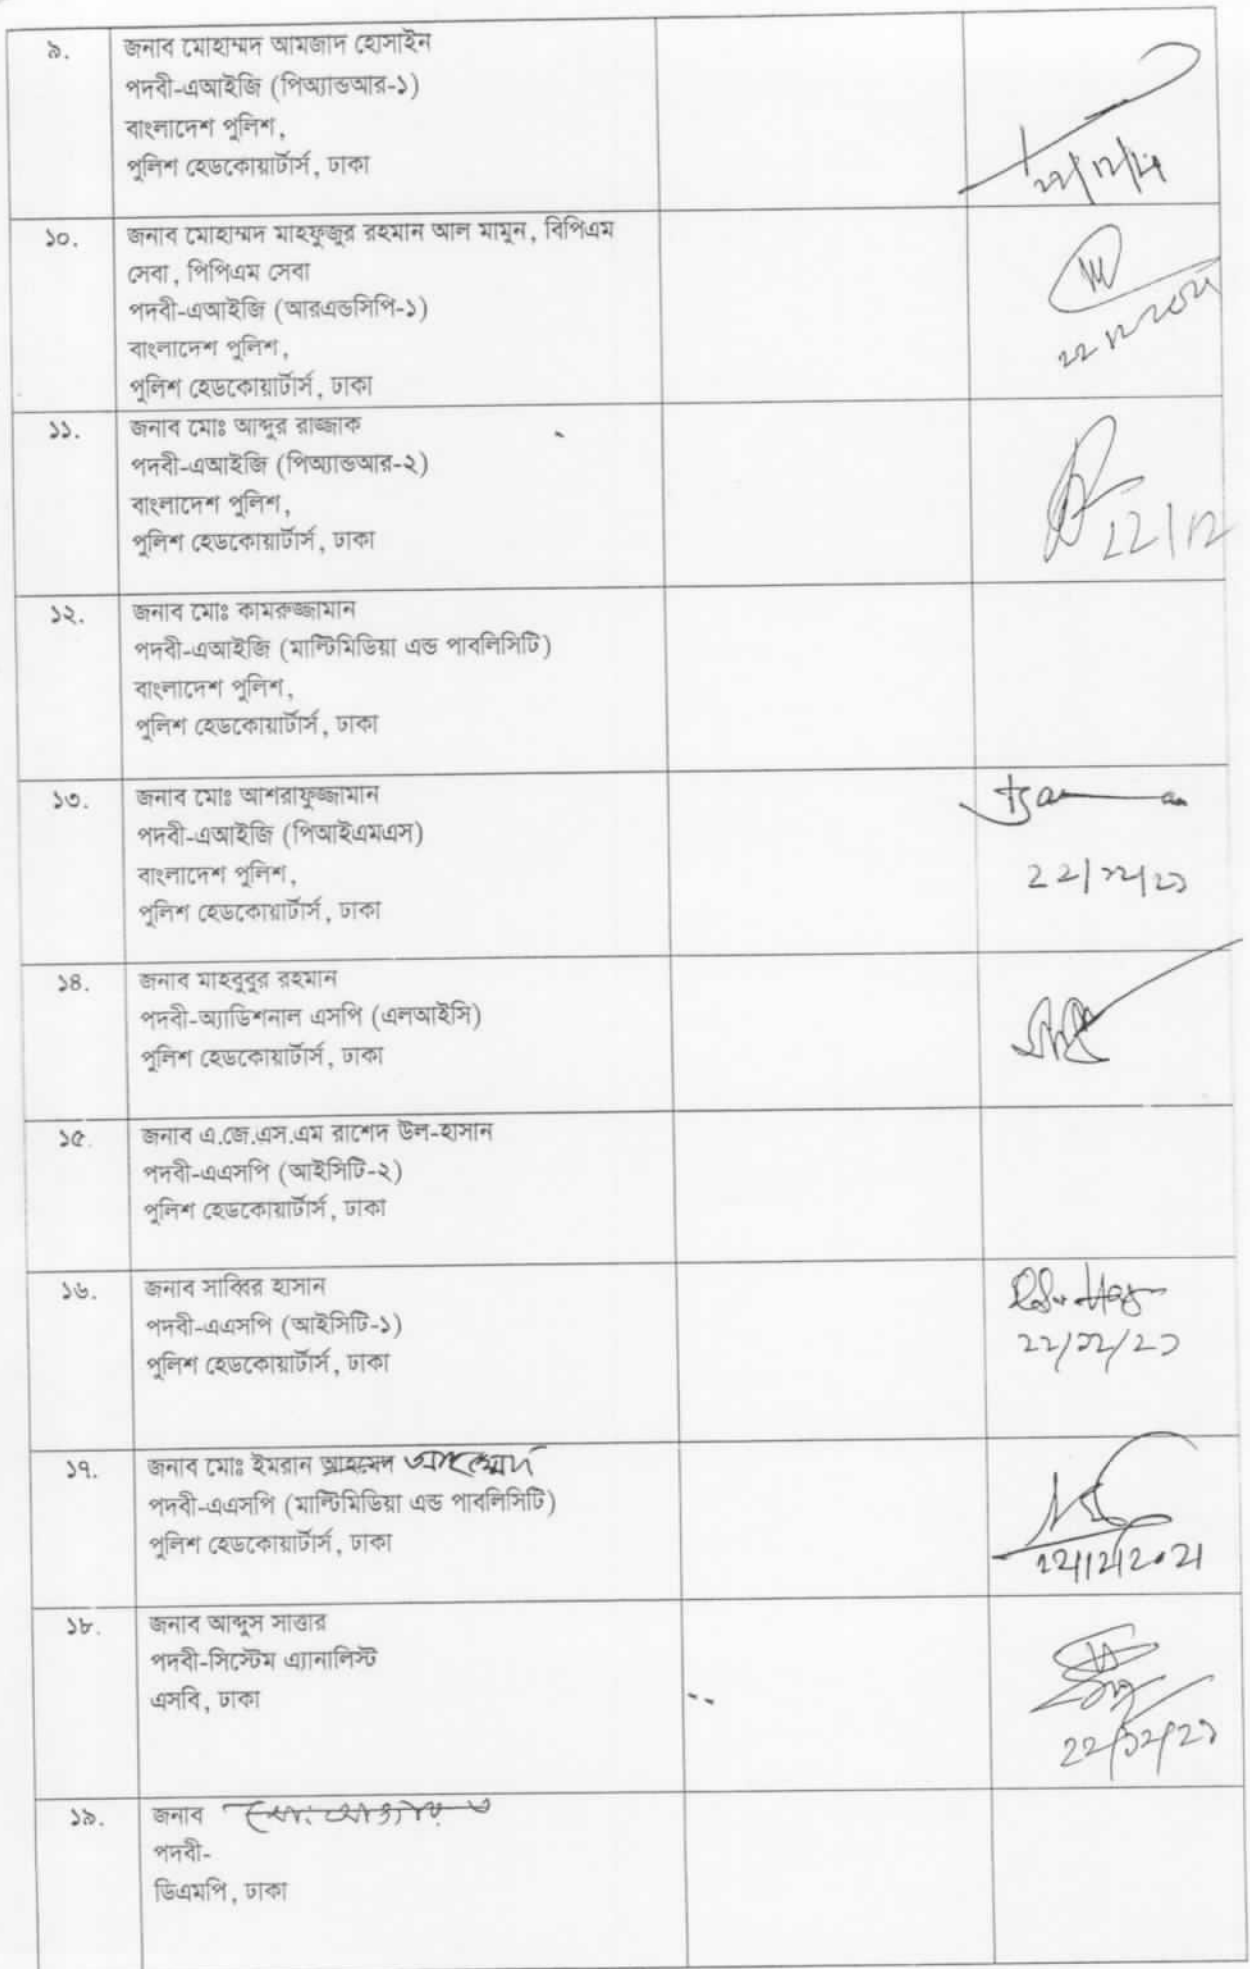 ৯.
জনাব মোহাম্মদ আমজাদ হোসাইন
পদবী-এআইজি (পিঅ্যান্ডআর-১)
বাংলাদেশ পুলিশ,
পুলিশ হেডকোয়ার্টার্স, ঢাকা
১০.
জনাব মোহাম্মদ মাহফুজুর রহমান আল মামুন, বিপিএম
সেবা, পিপিএম সেবা
পদবী-এআইজি (আরএন্ডসিপি-১)
বাংলাদেশ পুলিশ,
পুলিশ হেডকোয়ার্টার্স, ঢাকা
১১.
জনাব মোঃ আব্দুর রাজ্জাক
পদবী-এআইজি (পিঅ্যান্ডআর-২)
বাংলাদেশ পুলিশ,
পুলিশ হেডকোয়ার্টার্স, ঢাকা
22/12
১২.
জনাব মোঃ কামরুজ্জামান
পদবী-এআইজি (মাল্টিমিডিয়া এন্ড পাবলিসিটি)
বাংলাদেশ পুলিশ,
পুলিশ হেডকোয়ার্টার্স, ঢাকা
১৩.
জনাব মোঃ আশরাফুজ্জামান
পদবী-এআইজি (পিআইএমএস)
বাংলাদেশ পুলিশ,
পুলিশ হেডকোয়ার্টার্স, ঢাকা
২২/১২/২১
১৪.
জনাব মাহবুবুর রহমান
পদবী-অ্যাডিশনাল এসপি (এলআইসি)
পুলিশ হেডকোয়ার্টার্স, ঢাকা
১৫.
জনাব এ.জে.এস.এম রাশেদ উল-হাসান
পদবী-এএসপি (আইসিটি-২)
পুলিশ হেডকোয়ার্টার্স, ঢাকা
১৬.
জনাব সাব্বির হাসান
পদবী-এএসপি (আইসিটি-১)
পুলিশ হেডকোয়ার্টার্স, ঢাকা
২২/১২/২১
১৭.
জনাব মোঃ ইমরান আহমেদ আহম্মেদ
পদবী-এএসপি (মাল্টিমিডিয়া এন্ড পাবলিসিটি)
পুলিশ হেডকোয়ার্টার্স, ঢাকা
22/12/2021
১৮.
জনাব আব্দুস সাত্তার
পদবী-সিস্টেম এ্যানালিস্ট
এসবি, ঢাকা
২২/১২/২১
১৯.
জনাব
পদবী-
ডিএমপি, ঢাকা